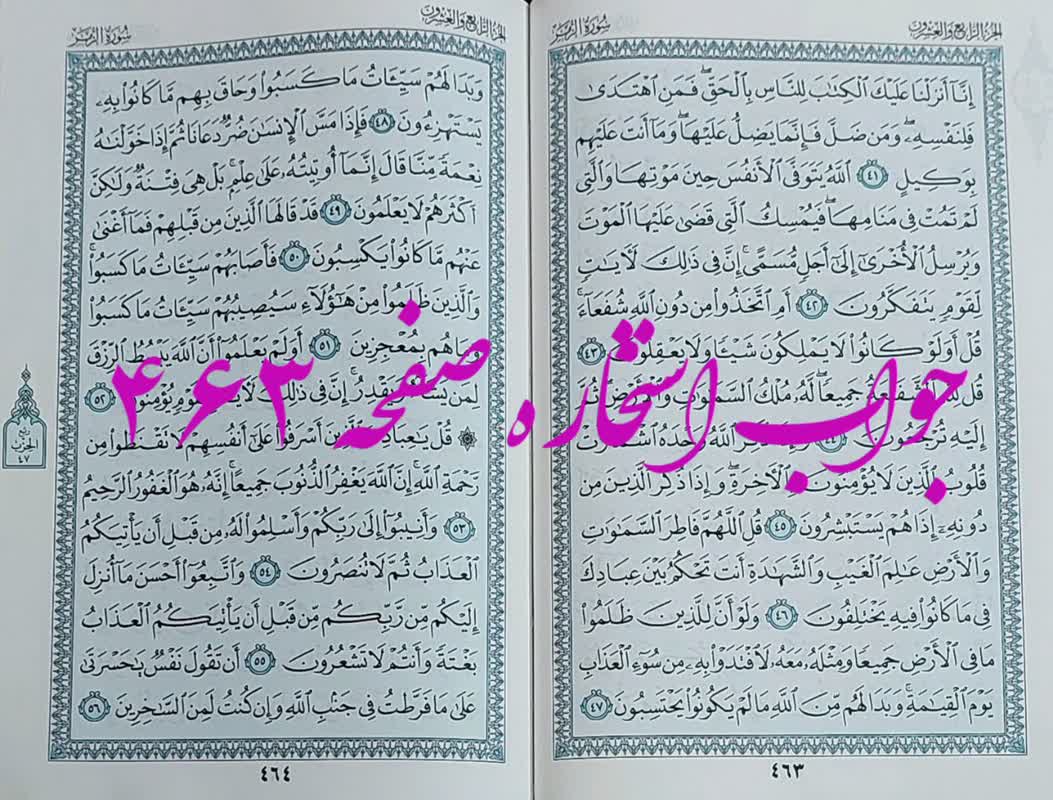 الجزء الرابع والعشرون
سورة الزمر
إِنَّآ أَنزَلْنَا عَلَيْكَ ٱلْكِتَٰبَ لِلنَّاسِ بِٱلْحَقِّ ۖ فَمَنِ ٱهْتَدَىٰ
فَلِنَفْسِهِۦ ۖ وَمَن ضَلَّ فَإِنَّمَا يَضِلُّ عَلَيْهَا ۖ وَمَآ أَنتَ عَلَيْهِم
بِوَكِيلٍ ٤١ ٱللَّهُ يَتَوَفَّى ٱلْأَنفُسَ حِينَ مَوْتِهَا وَٱلَّتِى
لَمْ تَمُتْ فِى مَنَامِهَا ۖ فَيُمْسِكُ ٱلَّتِى قَضَىٰ عَلَيْهَا ٱلْمَوْتَ
وَيُرْسِلُ ٱلْأُخْرَىٰٓ إِلَىٰٓ أَجَلٍ مُّسَمًّى ۚ إِنَّ فِى ذَٰلِكَ لَءَايَٰتٍ
لِّقَوْمٍ يَتَفَكَّرُونَ ٤٢ أَمِ ٱتَّخَذُوا۟ مِن دُونِ ٱللَّهِ شُفَعَآءَ ۚ
قُلْ أَوَلَوْ كَانُوا۟ لَا يَمْلِكُونَ شَيْـًٔا وَلَا يَعْقِلُونَ ٤٣
قُل لِّلَّهِ ٱلشَّفَٰعَةُ جَمِيعًا ۖ لَّهُۥ مُلْكُ ٱلسَّمَٰوَٰتِ وَٱلْأَرْضِ ۖ ثُمَّ
إِلَيْهِ تُرْجَعُونَ ٤٤ وَإِذَا ذُكِرَ ٱللَّهُ وَحْدَهُ ٱشْمَأَزَّتْ
قُلُوبُ ٱلَّذِينَ لَا يُؤْمِنُونَ بِٱلْءَاخِرَةِ ۖ وَإِذَا ذُكِرَ ٱلَّذِينَ مِن
دُونِهِۦٓ إِذَا هُمْ يَسْتَبْشِرُونَ ٤٥ قُلِ ٱللَّهُمَّ فَاطِرَ ٱلسَّمَٰوَٰتِ
وَٱلْأَرْضِ عَٰلِمَ ٱلْغَيْبِ وَٱلشَّهَٰدَةِ أَنتَ تَحْكُمُ بَيْنَ عِبَادِكَ
فِى مَا كَانُوا۟ فِيهِ يَخْتَلِفُونَ ٤٦ وَلَوْ أَنَّ لِلَّذِينَ ظَلَمُوا۟
مَا فِى ٱلْأَرْضِ جَمِيعًا وَمِثْلَهُۥ مَعَهُۥ لَٱفْتَدَوْا۟ بِهِۦ مِن سُوٓءِ ٱلْعَذَابِ
يَوْمَ ٱلْقِيَٰمَةِ ۚ وَبَدَا لَهُم مِّنَ ٱللَّهِ مَا لَمْ يَكُونُوا۟ يَحْتَسِبُونَ ٤٧
٤٦٣
الجزء الرابع والعشرون
سورة الزمر
وَبَدَا لَهُمْ سَيِّـَٔاتُ مَا كَسَبُوا۟ وَحَاقَ بِهِم مَّا كَانُوا۟ بِهِۦ
يَسْتَهْزِءُونَ ٤٨ فَإِذَا مَسَّ ٱلْإِنسَٰنَ ضُرٌّ دَعَانَا ثُمَّ إِذَا خَوَّلْنَٰهُ
نِعْمَةً مِّنَّا قَالَ إِنَّمَآ أُوتِيتُهُۥ عَلَىٰ عِلْمٍۭ ۚ بَلْ هِىَ فِتْنَةٌ وَلَٰكِنَّ
أَكْثَرَهُمْ لَا يَعْلَمُونَ ٤٩ قَدْ قَالَهَا ٱلَّذِينَ مِن قَبْلِهِمْ فَمَآ أَغْنَىٰ
عَنْهُم مَّا كَانُوا۟ يَكْسِبُونَ ٥٠ فَأَصَابَهُمْ سَيِّـَٔاتُ مَا كَسَبُوا۟ ۚ
وَٱلَّذِينَ ظَلَمُوا۟ مِنْ هَٰٓؤُلَآءِ سَيُصِيبُهُمْ سَيِّـَٔاتُ مَا كَسَبُوا۟
وَمَا هُم بِمُعْجِزِينَ ٥١ أَوَلَمْ يَعْلَمُوٓا۟ أَنَّ ٱللَّهَ يَبْسُطُ ٱلرِّزْقَ
لِمَن يَشَآءُ وَيَقْدِرُ ۚ إِنَّ فِى ذَٰلِكَ لَءَايَٰتٍ لِّقَوْمٍ يُؤْمِنُونَ ٥٢
۞ قُلْ يَٰعِبَادِىَ ٱلَّذِينَ أَسْرَفُوا۟ عَلَىٰٓ أَنفُسِهِمْ لَا تَقْنَطُوا۟ مِن
رَّحْمَةِ ٱللَّهِ ۚ إِنَّ ٱللَّهَ يَغْفِرُ ٱلذُّنُوبَ جَمِيعًا ۚ إِنَّهُۥ هُوَ ٱلْغَفُورُ ٱلرَّحِيمُ
٥٣ وَأَنِيبُوٓا۟ إِلَىٰ رَبِّكُمْ وَأَسْلِمُوا۟ لَهُۥ مِن قَبْلِ أَن يَأْتِيَكُمُ
ٱلْعَذَابُ ثُمَّ لَا تُنصَرُونَ ٥٤ وَٱتَّبِعُوٓا۟ أَحْسَنَ مَآ أُنزِلَ
إِلَيْكُم مِّن رَّبِّكُم مِّن قَبْلِ أَن يَأْتِيَكُمُ ٱلْعَذَابُ
بَغْتَةً وَأَنتُمْ لَا تَشْعُرُونَ ٥٥ أَن تَقُولَ نَفْسٌ يَٰحَسْرَتَىٰ
عَلَىٰ مَا فَرَّطتُ فِى جَنۢبِ ٱللَّهِ وَإِن كُنتُ لَمِنَ ٱلسَّٰخِرِينَ ٥٦
٤٦٤
ربع
الحزب
٤٧
جواب استخاره صفحه ۴۶۳